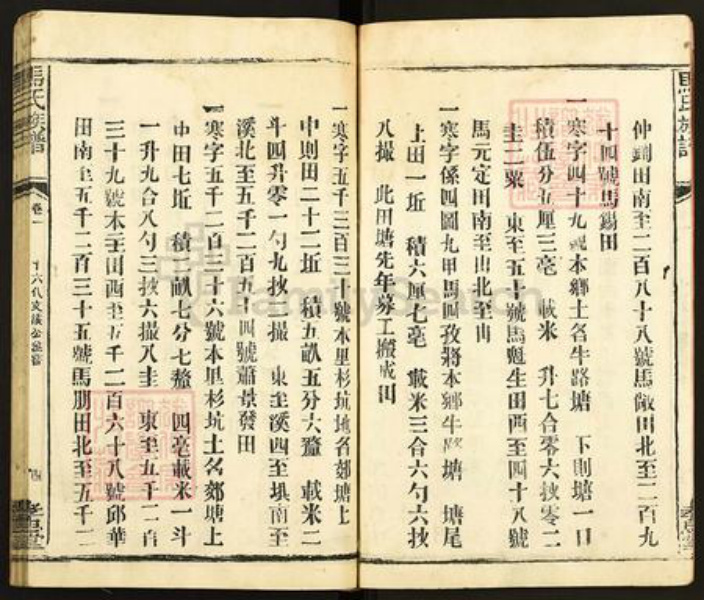 馬氏族譜
仲錫田南至二百八十八號馬儆田北至二百九
十四號馬錫田
一寒字四十九號本鄉土名牛路塘 下則塘一口
積伍分五厘三毫 載米 升七合零六抰零二
圭二粟 東至五十號馬魁生田西至四十八號
馬元定田南至山北至山
一寒字係四圖九甲馬四孜將本鄉牛 塘 塘尾
上田一坵 積六厘七毫 載米三合六勺六抰
八撮 此田塘先年募工搬成田
一寒字五千三百三十號本里杉坑地名郊塘上
中則田二十二坵 積五畝五分六釐 載米二
斗四升零一勺九抰一撮 東至溪西至垻南至
溪北至五千二百五十四號蕭景發田
一寒字五千二百三十六號本里杉坑土名郊塘上
中田七坵 積 畝七分七釐 四毫載米一斗
一升九合八勺三抰六撮八圭 東至五千二百
三十九號本至田西至五千二百六十八號邱華
田南至五千二百三十五號馬朋田北至五千二
馬氏族譜 卷一 十六代 公 嘗 四 孝思堂
FamilySearch